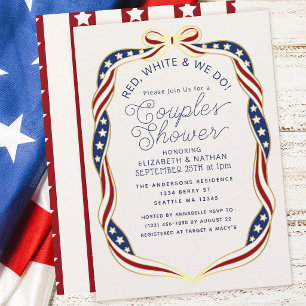 RED, WHITE & WE DO!
Please Join Us for a
Couples
Shower
HONORING
ELIZABETH & NATHAN
SEPTEMBER 25TH at 1pm
THE ANDERSONS RESIDENCE
1234 BERRY ST
SEATTLE, MA 12345
HOSTED BY ANNABELLE RSVP TO
(123) 456-7890 BY AUGUST 22
REGISTERED AT TARGET & MACY'S